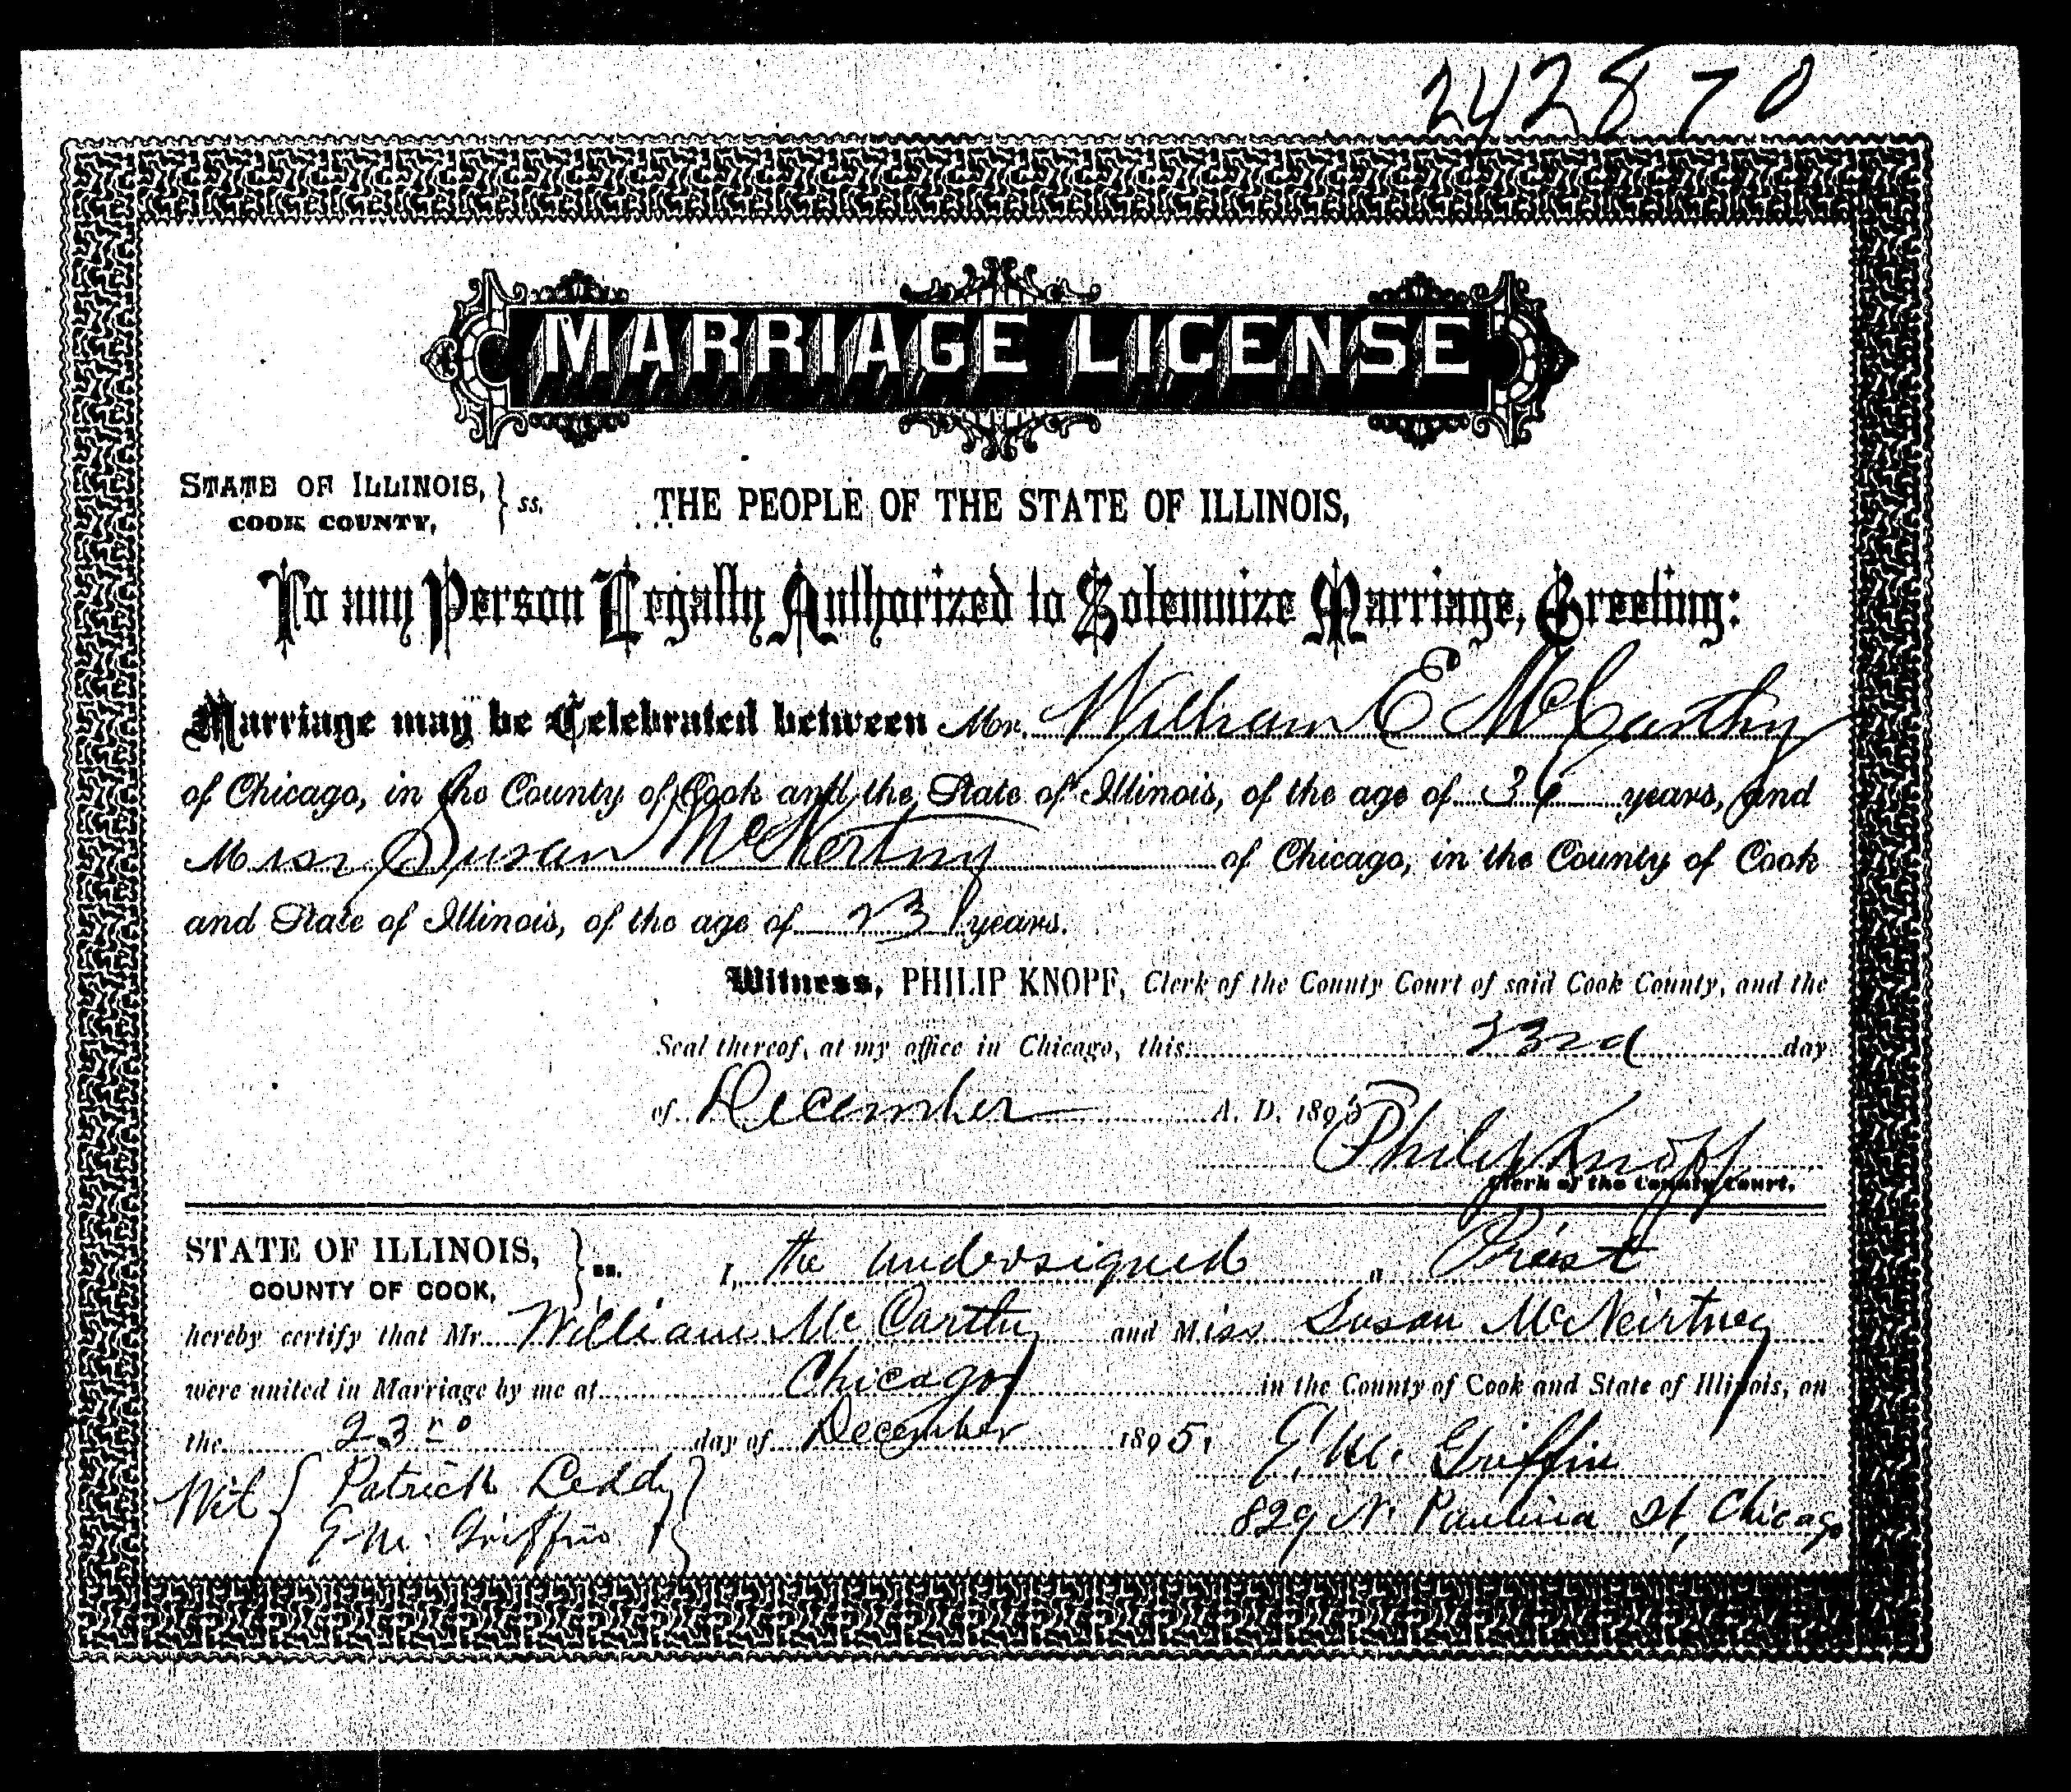 242870
MARRIAGE LICENSE
STATE OF ILLINOIS, } ss. THE PEOPLE OF THE STATE OF ILLINOIS,
COOK COUNTY,
To any Person Legally Authorized to Solemnize Marriage, Greeting:
Marriage may be Celebrated between Mr. William E McCarthy
of Chicago, in the County of Cook and the State of Illinois, of the age of 36 years, and
Miss Susan McNertny of Chicago, in the County of Cook
and State of Illinois, of the age of 23 years.
Witness, PHILIP KNOPF, Clerk of the County Court of said Cook County, and the
Seal thereof, at my office in Chicago, this 23rd day
of December A. D. 1895
Philip Knopf
Clerk of the County Court.
STATE OF ILLINOIS, } ss. I, the undersigned a Priest
COUNTY OF COOK,
hereby certify that Mr. William McCarthy and Miss Susan McNeirtney
were united in Marriage by me at Chicago in the County of Cook and State of Illinois, on
the 23rd day of December 1895, E. M. Griffin
Wit { Patrick Leddy } 829 N. Paulina St, Chicago
E. M. Griffin